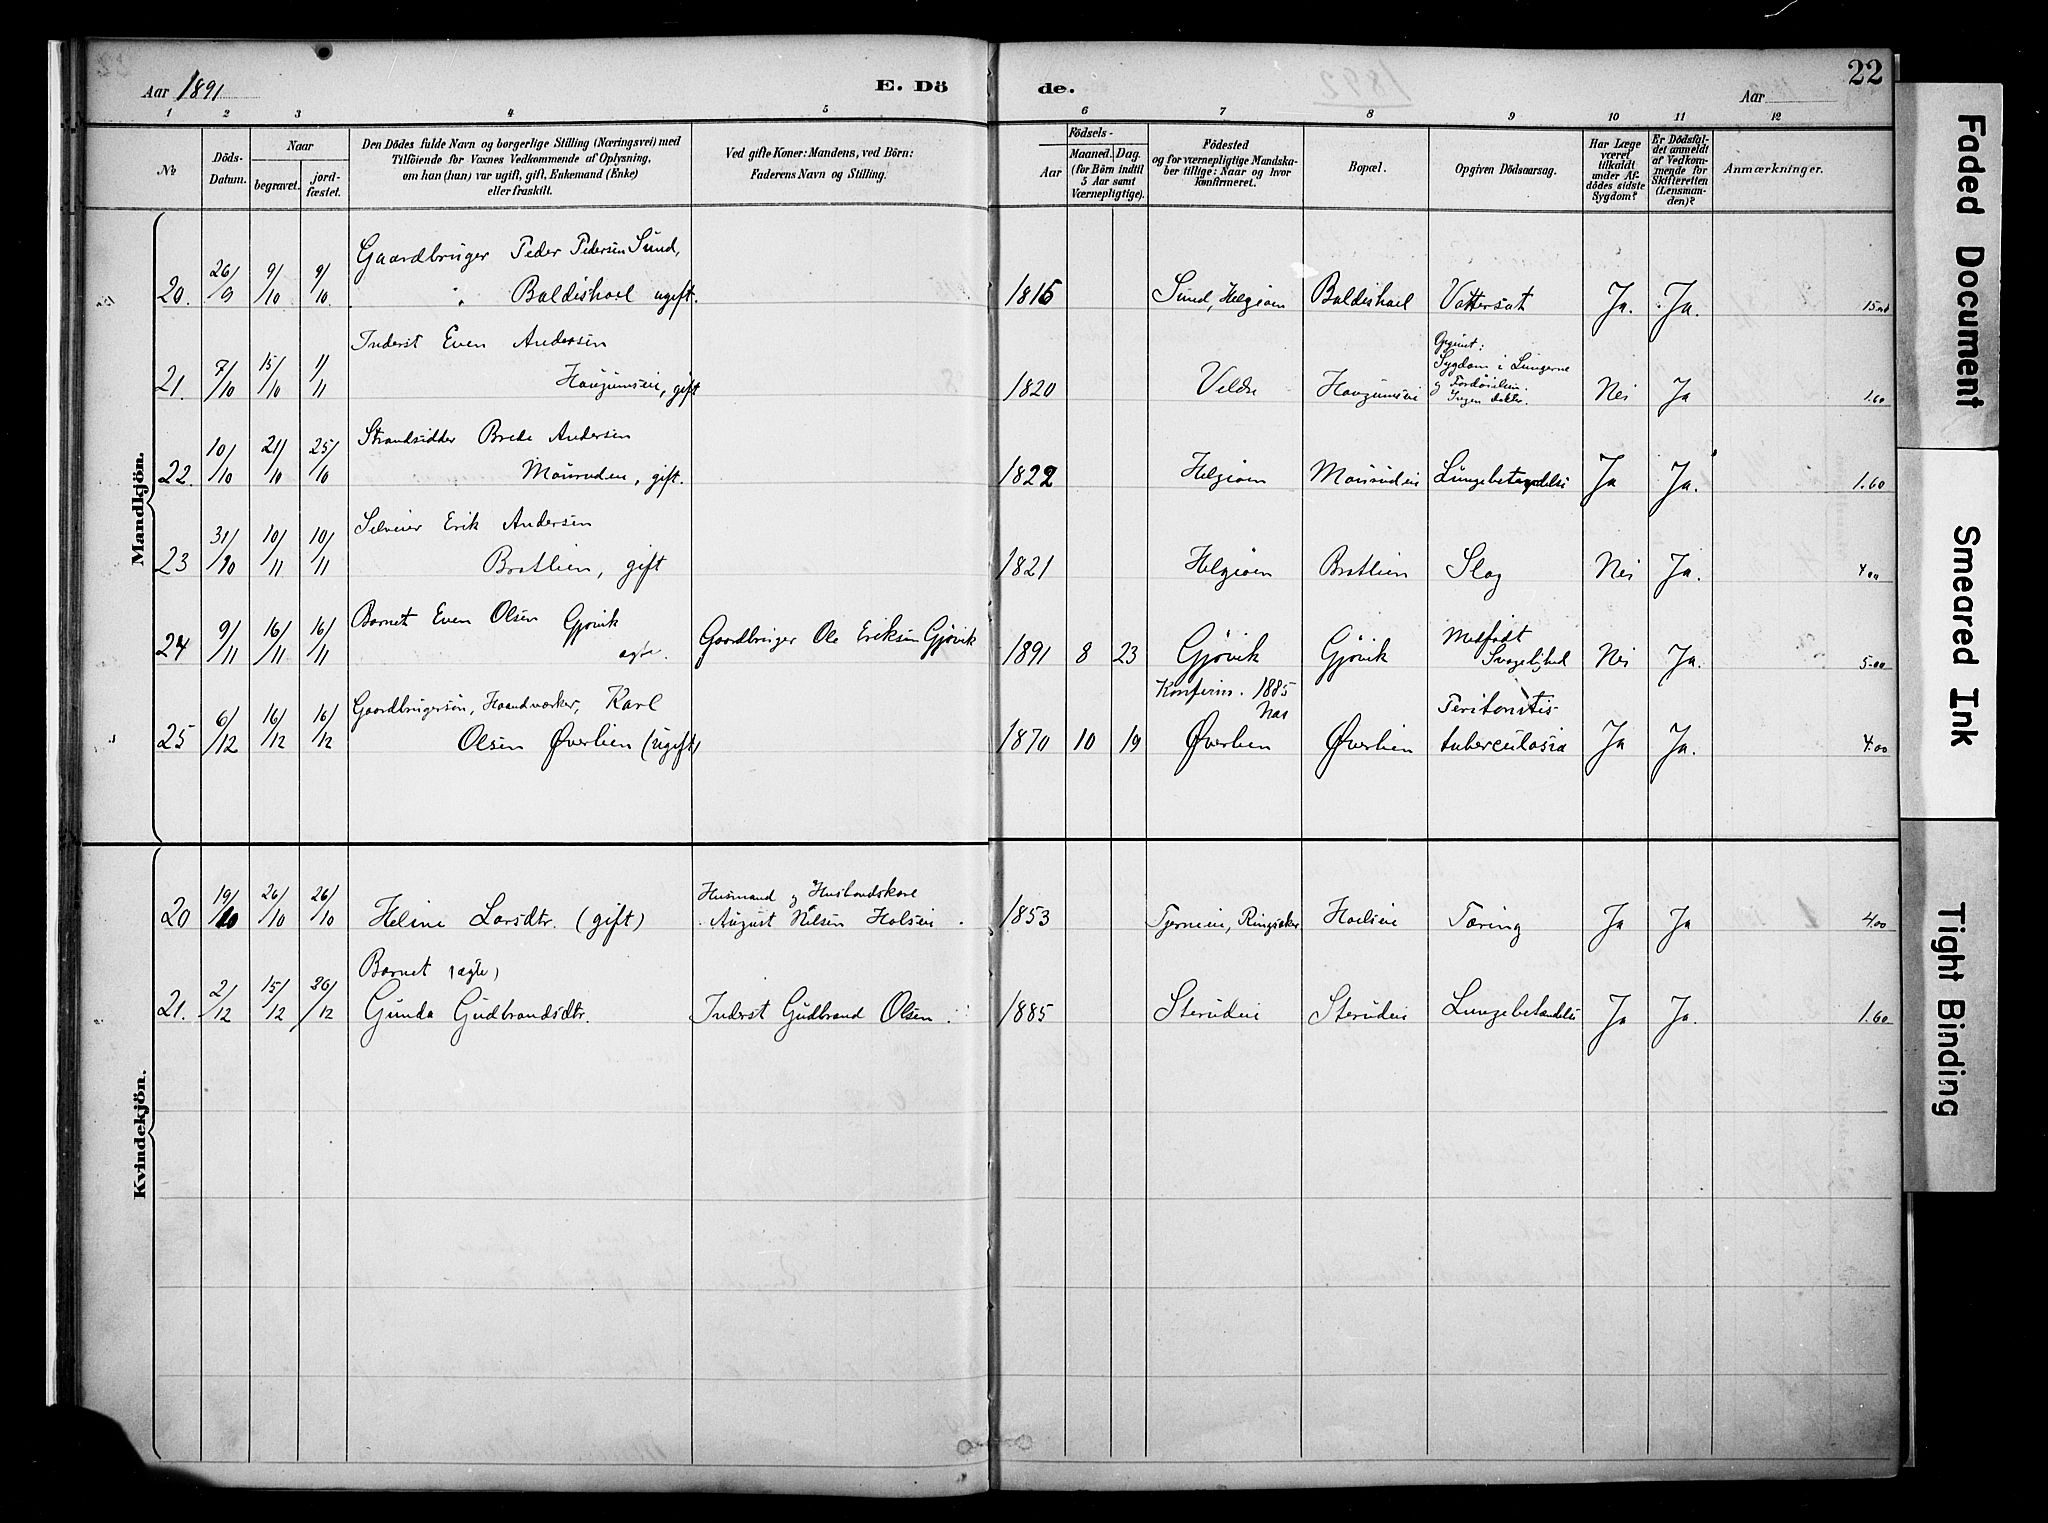 Aar 1891
E. Dö
de.
1892
22
Aar
1 2 3 4 5 6 7 8 9 10 11 12
No
Döds-Datum.
Naar
begravet.
jord-fæstet.
Den Dödes fulde Navn og borgerlige Stilling (Næringsvei) med
Tilföiende for Voxnes Vedkommende af Oplysning,
om han (hun) var ugift, gift, Enkemand (Enke)
eller fraskilt.
Ved gifte Koner: Mandens, ved Börn:
Faderens Navn og Stilling.
Födsels-
Aar
Maaned. Dag.
(for Börn indtil
5 Aar samt
Værnepligtige).
Födested
og for værnepligtige Mandska-
ber tillige: Naar og hvor
konfirmeret.
Bopæl.
Opgiven Dödsaarsag.
Har Læge
været
tilkaldt
under Af-
dödes sidste
Sygdom?
Er Dödsfal-
det anmeldt
af Vedkom-
mende for
Skifteretten
(Lensman-
den)?
Anmærkninger.
Mandkjön.
Gaardbruger Peder Pedersen Sund,
20. 26/9 9/10 9/10 " Baldishoel ugift. 1816 Sund, Helgøen Baldishoel Vattersot Ja. Ja.
Inderst Even Andersen
21. 7/10 15/10 1/11 gift 1820 Veldre Nei Ja 1.60
Sygdom i Lungerne
Ingen Doktor.
Strandsidder Brede Andersen
22. 10/10 21/10 25/10 Mouruden, gift. 1822 Helgøen Lungebetændelse Ja Ja. 1.60
Selveier Erik Andersen
23 31/10 10/11 10/11 Bratlien, gift 1821 Helgøen Bratlien Slag Nei Ja. 4.00
Barnet Even Olsen Gjøvik
24 9/11 16/11 16/11 ægte. Gaardbruger Ole Eriksen Gjøvik 1891 8 23 Gjøvik Gjøvik Medfødt Svagelighed Nei Ja. 5.00
Gaardbrugersøn, Haandværker, Karl
Konfirm. 1885
Næs
Peritonitis
25 6/12 16/12 16/12 Olsen Øverlien (ugift) 1870 10 19 Øverlien Øverlien tuberculosia Ja Ja. 4.00
Kvindekjön.
Husmand og
20 19/10 26/10 26/10 Heline Larsdtr. (gift) August Nilsen 1853 Ringsaker Tæring Ja Ja 4.00
Barnet (ægte)
21. 2/12 15/12 Gunda Gudbrandsdtr. Inderst Gudbrand Olsen. 1885 Sterudei Sterudei Lungebetændelse Ja Ja. 1.60
Faded Document
Smeared Ink
Tight Binding